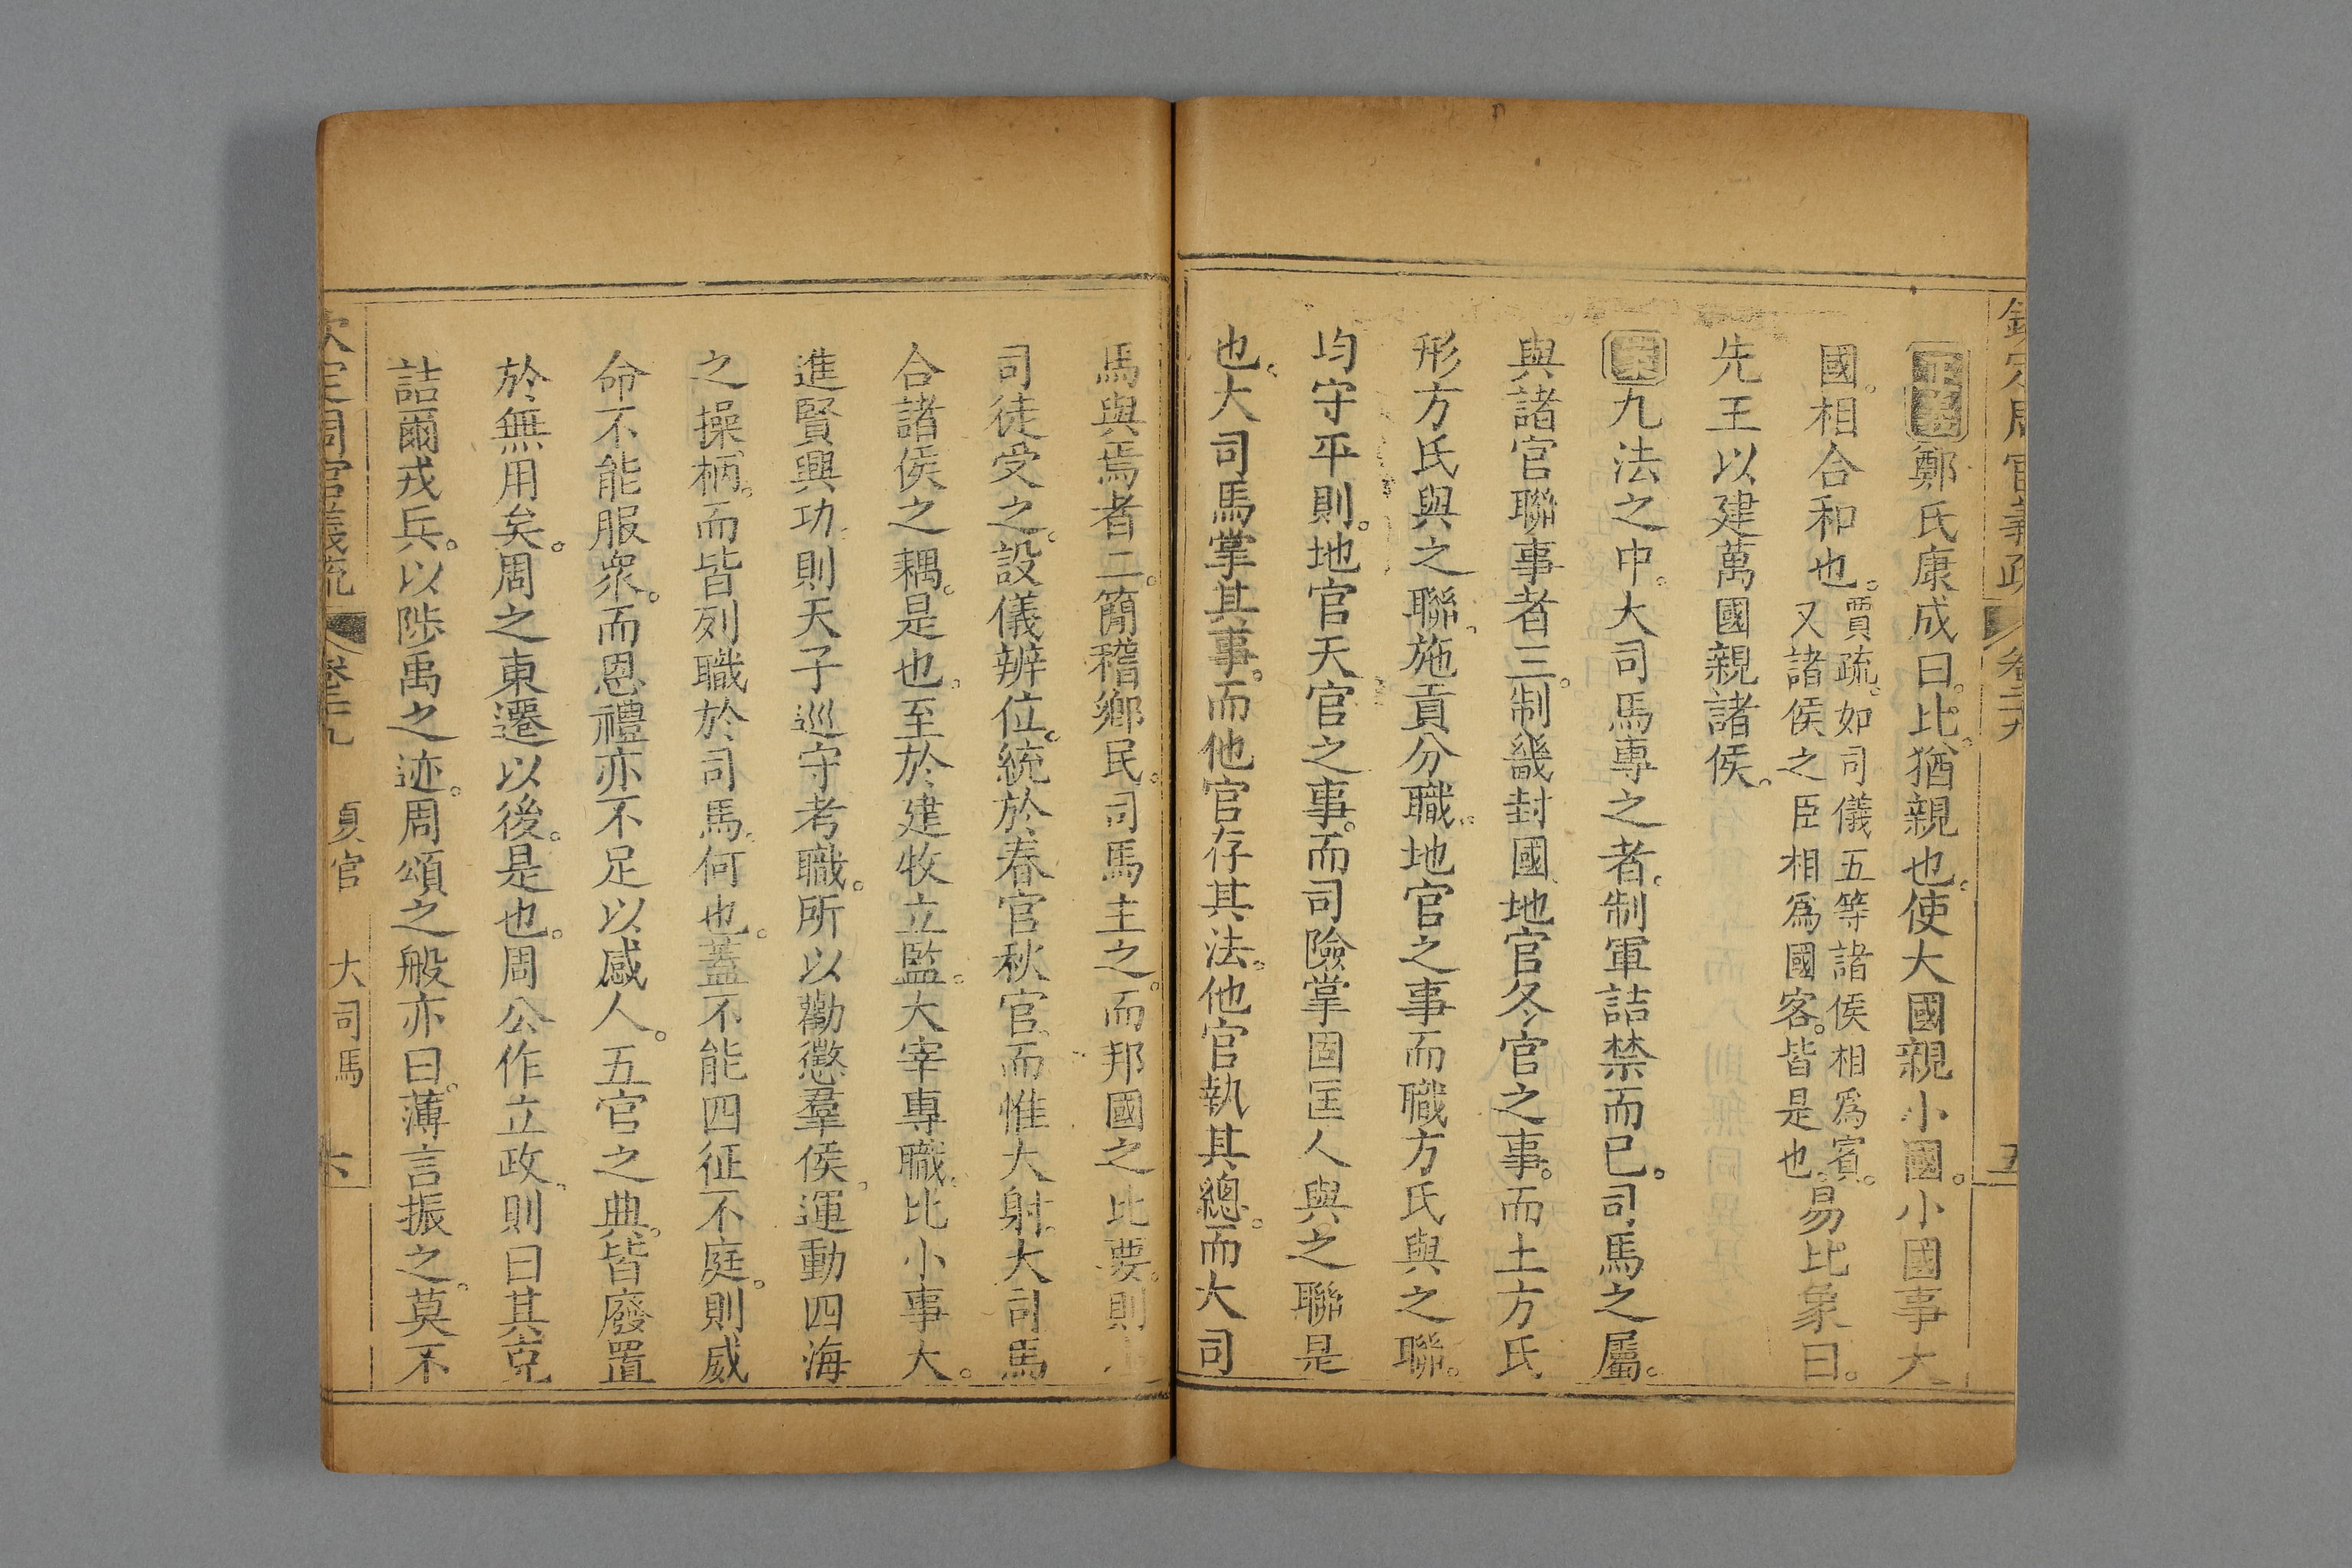 欽定周官義疏 卷二十九 五
正義鄭氏康成曰。比。猶親也。使大國親小國。小國事大
國。相合和也。賈疏。如司儀五等諸侯相爲賓。
又諸侯之臣相爲國客。皆是也。易比象曰。
先王以建萬國親諸侯。
案九法之中。大司馬專之者。制軍詰禁而已。司馬之屬。
與諸官聯事者三。制畿封國。地官冬官之事。而土方氏
形方氏與之聯。施貢分職。地官之事而職方氏與之聯。
均守平則。地官天官之事。而司險掌固匡人與之聯是
也。大司馬掌其事。而他官存其法。他官執其總。而大司
馬與焉者二。簡稽鄉民。司馬主之。而邦國之比要。則
司徒受之。設儀辨位。統於春官秋官。而惟大射。大司馬
合諸侯之耦。是也。至於建牧立監。大宰專職。比小事大。
進賢興功。則天子巡守考職。所以勸懲羣侯。運動四海
之操柄。而皆列職於司馬。何也。蓋不能四征不庭。則威
命不能服衆。而恩禮亦不足以感人。五官之典。皆廢置
於無用矣。周之東遷以後。是也。周公作立政。則曰其克
詰爾戎兵。以陟禹之迹。周頌之般亦曰。薄言振之。莫不
欽定周官義疏 卷二十九 夏官 大司馬 六